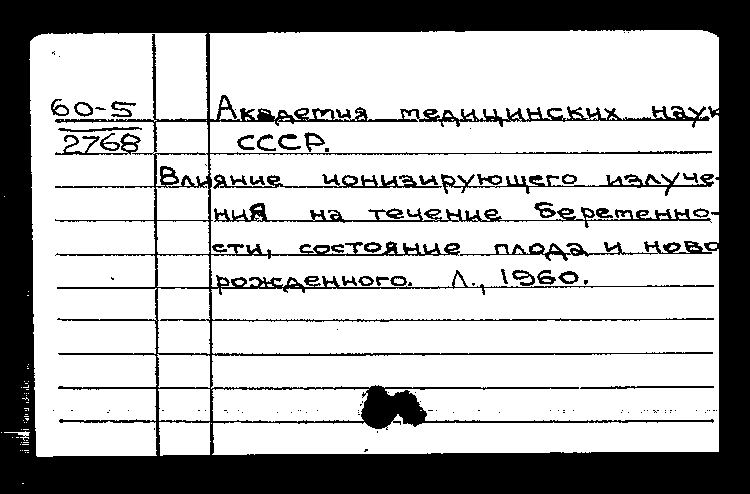 60-5
2768
Академия медицинских наук
СССР.
Влияние ионизирующего излуче-
ния на течение беременно-
сти, состояние плода и ново
рожденного. Л., 1960.